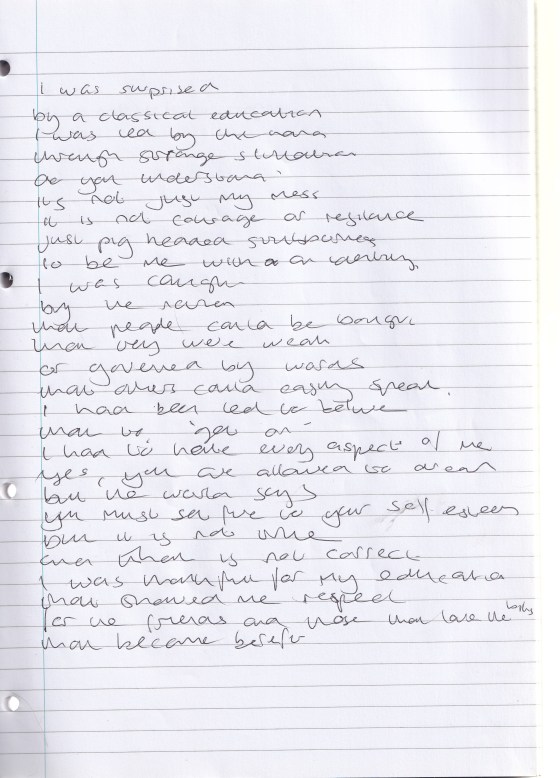 I was surprised
by a classical education
I was led by the hand
through strange situation
do you understand
its not just my mess
it is not courage or resiliance
just pig headed stubborness
to be me with an identity.
I was caught
by the notion
that people could be bought
that they were weak
or governed by words
that others could easily speak.
I had been led to believe
that to 'get on'
I had to hate every aspect of me
yes, you are allowed to dream
but the world says
you must set fire to your self esteem
but it is not true
and that is not correct
I was thankful for my education
that showed me respect
for the friends and those that love the books
that became bereft